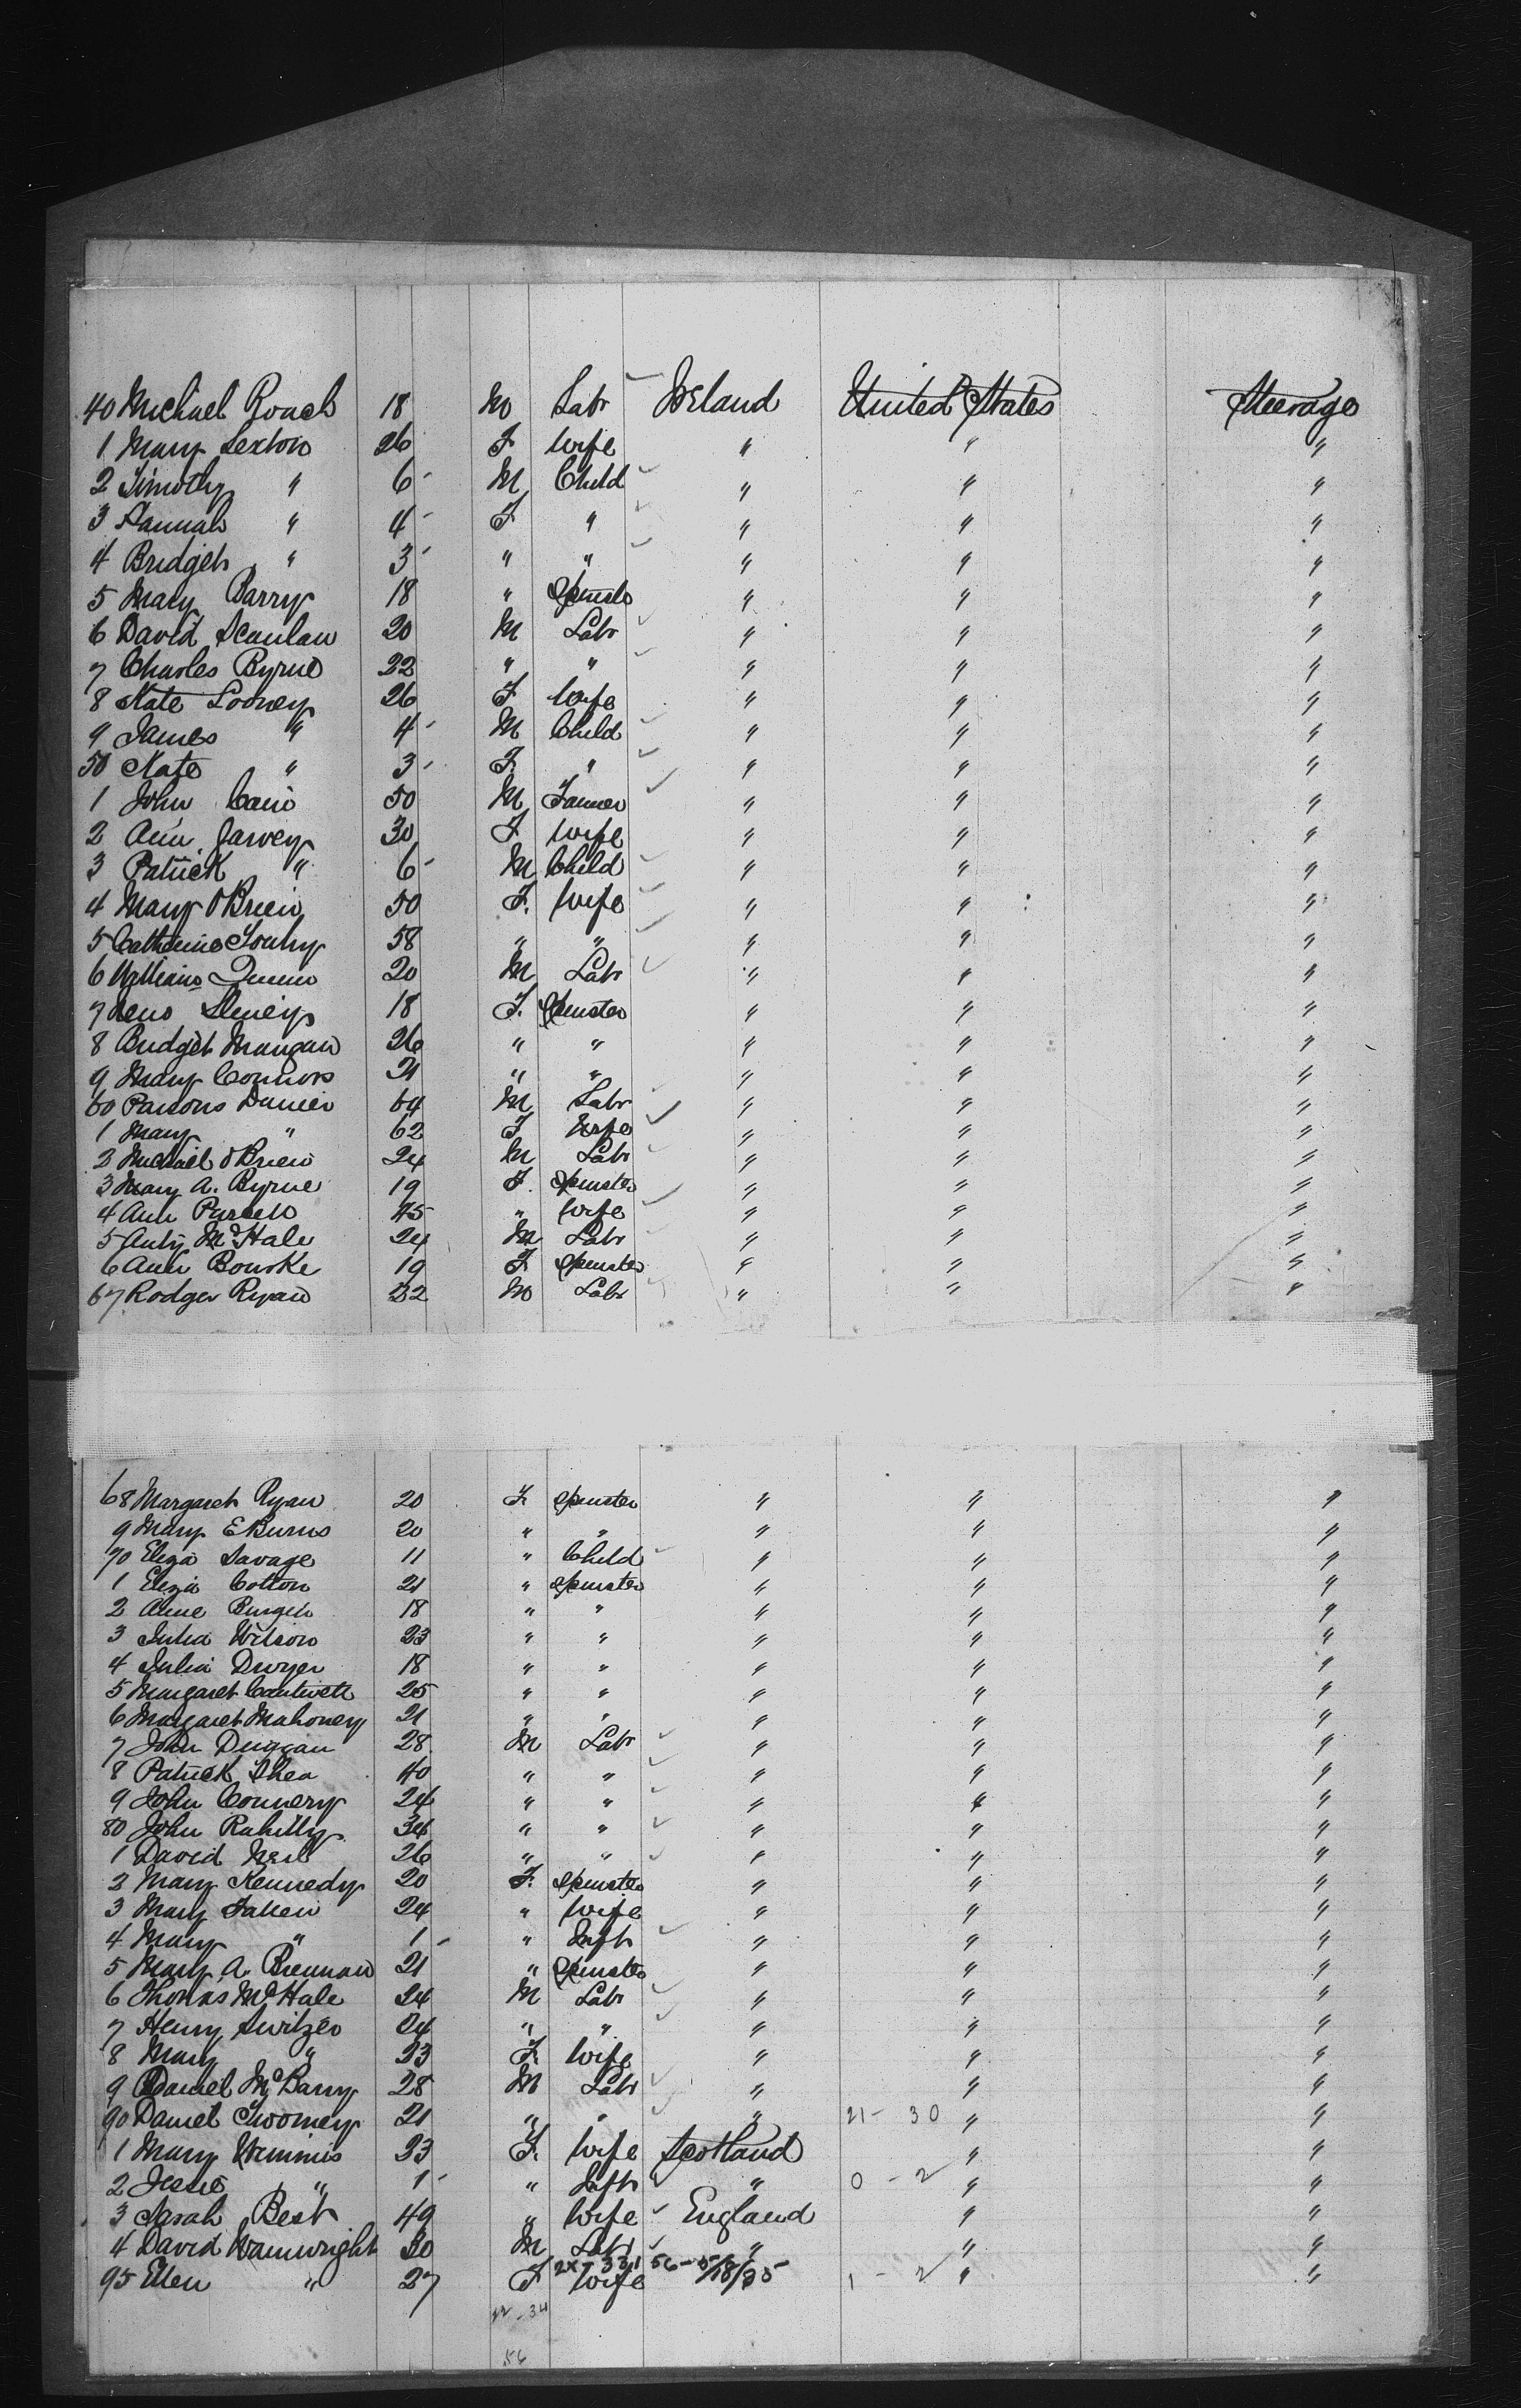 40 Michael Roach 18 M Labr Ireland United States Steerage
1 Mary Sexton 26 F Wife " " "
2 Timothy " 6 M Child " " "
3 Hannah " 4 F " " " "
4 Bridget " 3 " " " " "
5 Mary Barry 18 " Spinster " " "
6 David Scanlan 20 M Labr " " "
7 Charles Byrne 22 " " " " "
8 Kate Looney 26 F Wife " " "
9 James " 4 M Child " " "
50 Kate " 3 F " " " "
1 John Cain 50 M Farmer " " "
2 Ann Garvey 30 F Wife " " "
3 Patrick " 6 M Child " " "
4 Mary O'Brien 50 F. Wife " " "
5 Catherine 58 " " " " "
6 William Quinn 20 M Labr " " "
7 18 F. Spinster " " "
8 Bridget Mangan 26 " " " " "
9 Mary Connors 21 " " " " "
60 Parsons 64 M Labr " " "
1 Mary " 62 F Wife " " "
2 Michael O'Brien 24 M Labr " " "
3 Mary A. Byrne 19 F Spinster " " "
4 Ann Purcell 45 " Wife " " "
5 Anty McHale 24 M Labr " " "
6 Ann Bourke 19 F Spinster " " "
67 Rodger Ryan 22 M Labr " " "
68 Margaret Ryan 20 F. Spinster " " "
9 Mary E Burns 20 " " " " "
70 Eliza Savage 11 " Child " " "
1 Eliza Cotton 21 " Spinster " " "
2 Anne 18 " " " " "
3 Julia Wilson 23 " " " " "
4 Julia Dwyer 18 " " " " "
5 Margaret Cantwell 25 " " " " "
6 Margaret Mahoney 21 " " " " "
7 John Duggan 28 M Labr " " "
8 Patrick Shea 40 " " " " "
9 John Connery 24 " " " " "
80 John Rahilly 34 " " " " "
1 David Neil 26 " " " " "
2 Mary Kennedy 20 F. Spinster " " "
3 Mary 24 " Wife " " "
4 Mary " 1 " Inft " " "
5 Mary A. Brennan 21 " Spinster " " "
6 Thomas McHale 24 M Labr " " "
7 Henry Switzer 24 " " " " "
8 Mary " 23 F. Wife " " "
9 Daniel McBarry 28 M Labr " " "
90 Daniel Twomey 21 " " " 21 - 30 " "
1 Mary Wimmis 23 F. Wife Scotland " "
2 Jessie " 1 " Inft " 0 - 2 " "
3 Sarah Best 49 " Wife England " "
4 David Wainwright 30 M Labr " " "
95 Ellen " 27 F Wife 1 - 2 " "
22 - 34
56